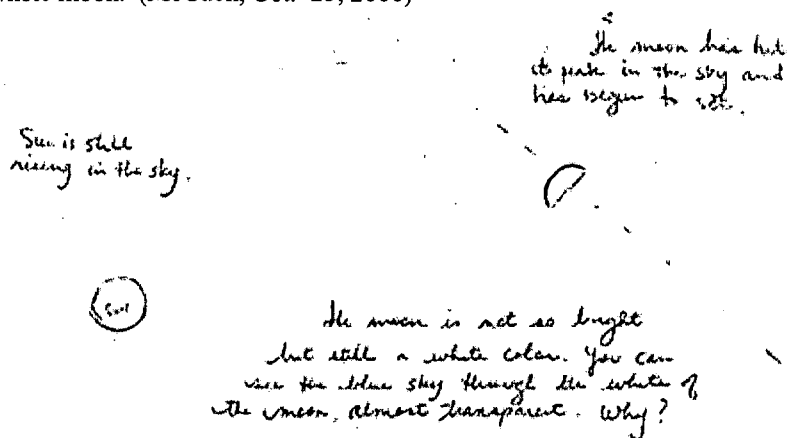 moon. (M. Such, Oct. 23, 2000)
The moon has hit
its peak in the sky and
has begun to set.
Sun is still
rising in the sky.
Sun
The moon is not so bright
but still a white color. You can
see the blue sky through the white of
the moon, almost transparent. Why?